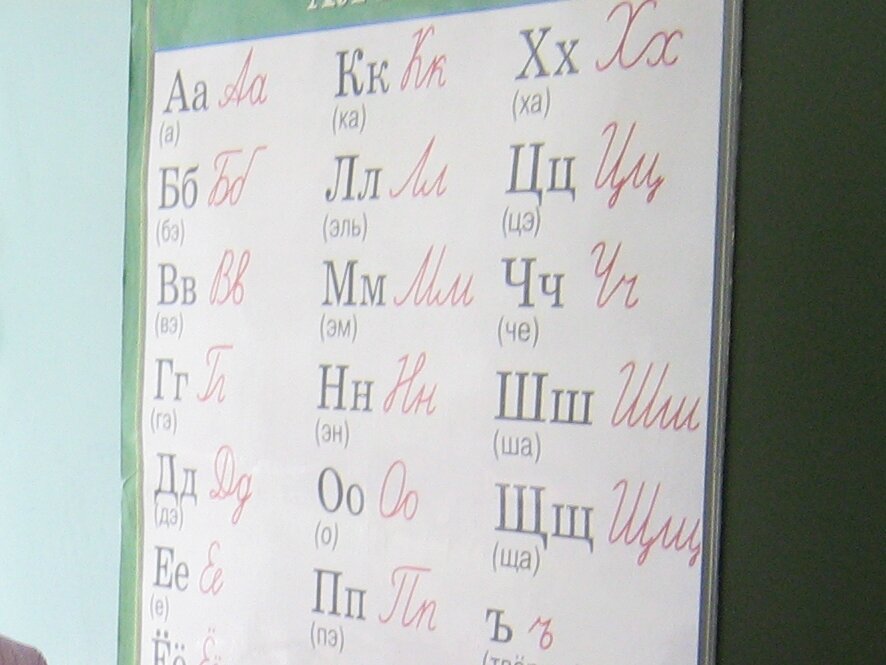 Аа Аа
(а)
Бб Бб
(бэ)
Вв Вв
(вэ)
Гг Гг
(гэ)
Дд Дд
(дэ)
Ее Ее
(е)
Ёё Ёё
Кк Кк
(ка)
Лл Лл
(эль)
Мм Мм
(эм)
Нн Нн
(эн)
Оо Оо
(о)
Пп Пп
(пэ)
Хх Хх
(ха)
Цц Цц
(цэ)
Чч Чч
(че)
Шш Шш
(ша)
Щщ Щщ
(ща)
Ъ ъ